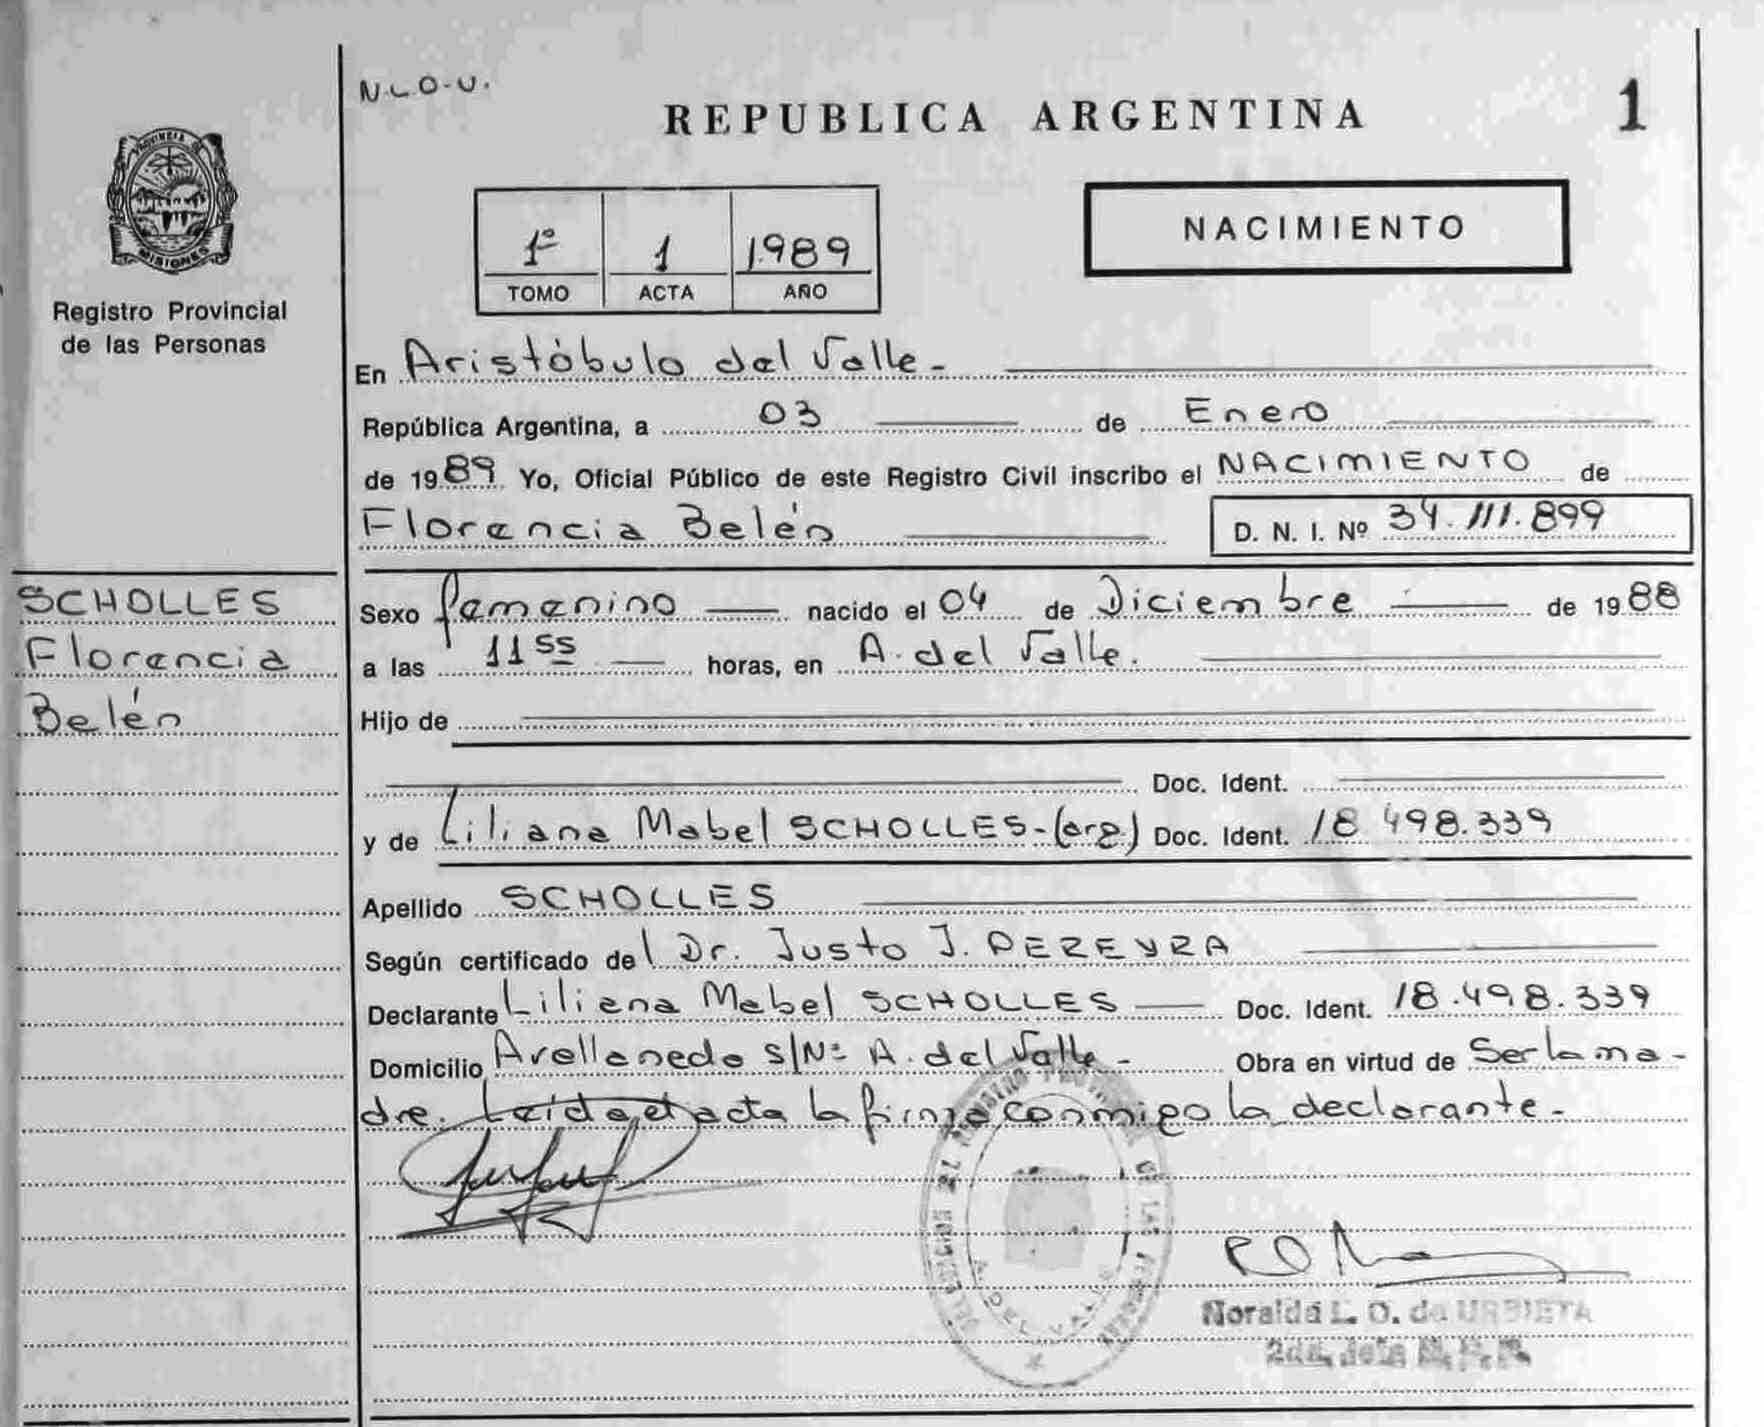 N.L.O.U.
REPUBLICA ARGENTINA
1
PROVINCIA DE
MISIONES
Registro Provincial
de las Personas
1º 1 1989
TOMO ACTA AÑO
NACIMIENTO
En Aristóbulo del Valle.-
República Argentina, a 03 de Enero
de 1989 Yo, Oficial Público de este Registro Civil inscribo el NACIMIENTO de
Florencia Belén D. N. I. Nº 34.111.899
SCHOLLES
Florencia
Belén
Sexo femenino nacido el 04 de Diciembre de 1988
a las 11 55 horas, en A. del Valle.
Hijo de
Doc. Ident.
y de Liliana Mabel SCHOLLES-(arg.) Doc. Ident. 18.498.339
Apellido SCHOLLES
Según certificado del Dr. Justo J. PEREYRA
Declarante Liliana Mabel SCHOLLES Doc. Ident. 18.498.339
Domicilio Avellaneda S/Nº A. del Valle.- Obra en virtud de Ser la ma-
dre. Leída el acta la firma conmigo la declarante.-
REGISTRO PROVINCIAL DE LAS PERSONAS
A. DEL VALLE
Noralda L. O. de URBIETA
2da. Jefa R. P. P.